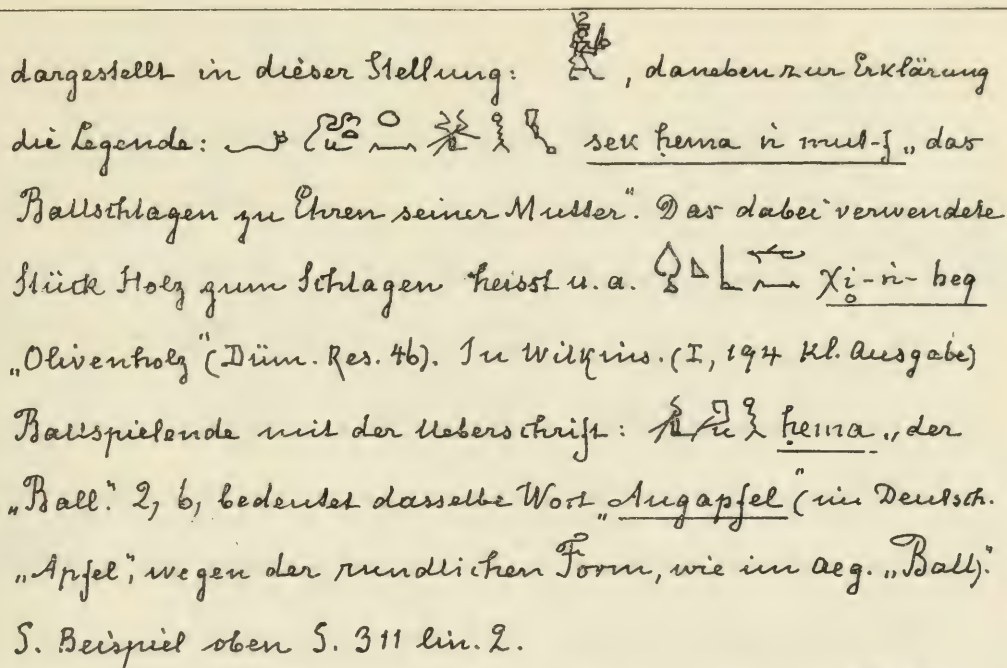 dargestellt in dieser Stellung: , daneben zur Erklärung
die Legende: seḳ ḥema n mut-f „das
Ballschlagen zu Ehren seiner Mutter“. Das dabei verwendete
Stück Holz zum Schlagen heisst u. a. χi-n-beq
„Olivenholz“ (Düm. Res. 46). In Wilkins. (I, 194 kl. Ausgabe)
Ballspielende mit der Ueberschrift: ḥema „der
„Ball“. 2, 6, bedeutet dasselbe Wort „Augapfel“ (im Deutsch.
„Apfel“, wegen der rundlichen Form, wie im aeg. „Ball“).
S. Beispiel oben S. 311 lin. 2.